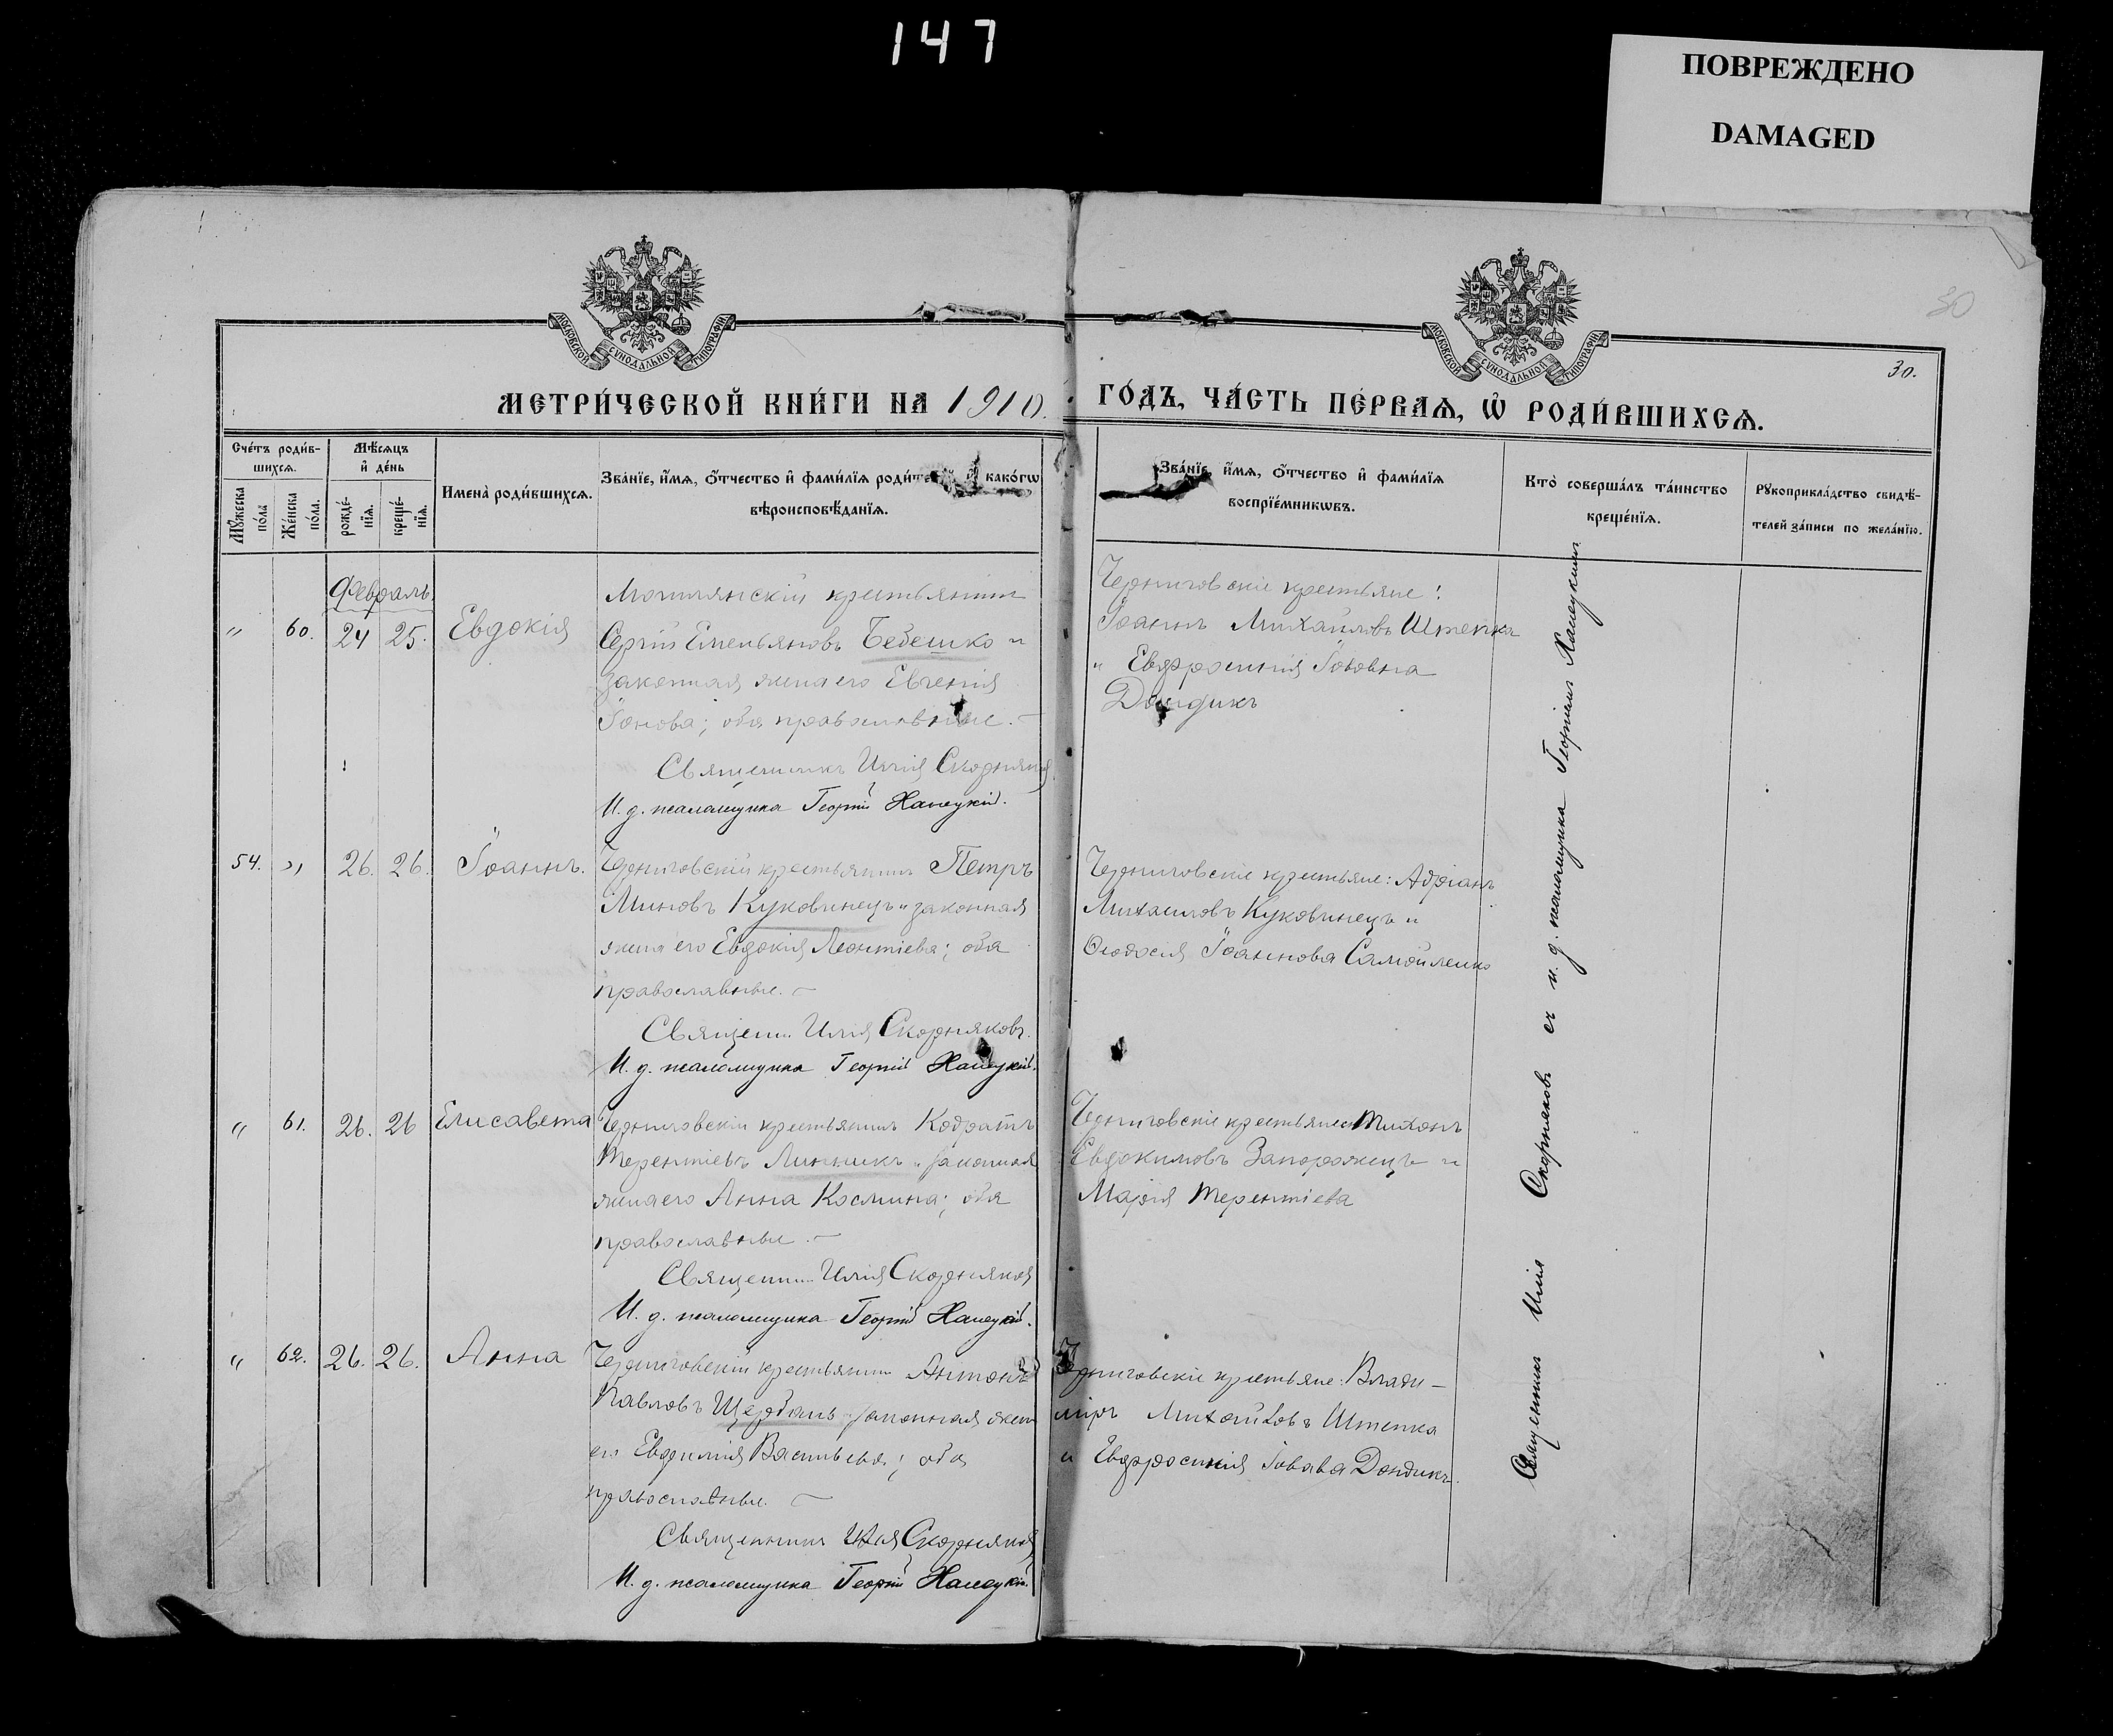 147
ПОВРЕЖДЕНО
DAMAGED
30
30.
МОСКОВСКОЙ СѴНОДАЛЬНОЙ ТИПОГРАФІИ
МОСКОВСКОЙ СѴНОДАЛЬНОЙ ТИПОГРАФІИ
МЕТРИ́ЧЕСКОЙ КНИ́ГИ НА 1910.
ГО́ДЪ, ЧА́СТЬ ПЕ́РВАѦ, Ѡ҆ РОДИ́ВШИХСѦ.
Сче́тъ роди́в-
шихсѧ.
Мѣ́сѧцъ
и҆ де́нь
Мꙋ́жеска
по́ла
Же́нска
по́ла.
рожде́-
нїѧ.
креще́-
нїѧ.
Имена̀ роди́вшихсѧ.
Зва́нїе, и҆́мѧ, ѻ҆́тчество и҆ фами́лїѧ роди́те и҆ како́гѡ
вѣроисповѣ́данїѧ.
Зва́нїе, и҆́мѧ, ѻ҆́тчество и҆ фами́лїѧ
воспрїе́мникѡвъ.
Кто̀ соверша́лъ та́инство
креще́нїѧ.
Рꙋкоприкла́дство свидѣ́-
телей за́писи по жела́нїю.
Февраль
" 60. 24 25. Евдокія
крестьянинъ
Сергій Емельяновъ Бебешко и
законная жена его Евгенія
Іонова; оба православные.
Священникъ Илія Скорняков
И. д. псаломщика Георгій Ханецкій.
Черниговскіе крестьяне:
Іоаннъ Михайловъ Штепка
и Евфросинія Іовова
Дондикъ
54. " 26. 26. Іоаннъ.
Черниговскій крестьянинъ Петръ
Миновъ Куковинецъ и законная
жена его Евдокія Леонтіева; оба
православные.
Священ. Илія Скорняковъ.
И. д. псаломщика Георгій Ханецкій.
Черниговскіе крестьяне: Адріанъ
Михаиловъ Куковинецъ и
Ѳеодосія Іоаннова Самойленко
" 61. 26. 26 Елисавета
Черниговскій крестьянинъ Кодратъ
Терентіевъ Линникъ и законная
жена его Анна Космина; оба
православные.
Священ. Илія Скорняков
И. д. псаломщика Георгій Ханецкій.
Черниговскіе крестьяне: Тихонъ
Евдокимовъ Запорожецъ и
Марія Терентіева
" 62. 26. 26. Анна
Черниговскій крестьянинъ Антонъ
Павловъ Щербань и законная жена
его Евфимія Васильева; оба
православные.
Священникъ Илія Скорняков
И. д. псаломщика Георгій Ханецкій.
Черниговскіе крестьяне: Влади-
міръ Михайловъ Штепка
и Евфросинія Іовова Дондикъ.
Священникъ Илія Скорняковъ съ и. д. псаломщика Георгіемъ Ханецкимъ